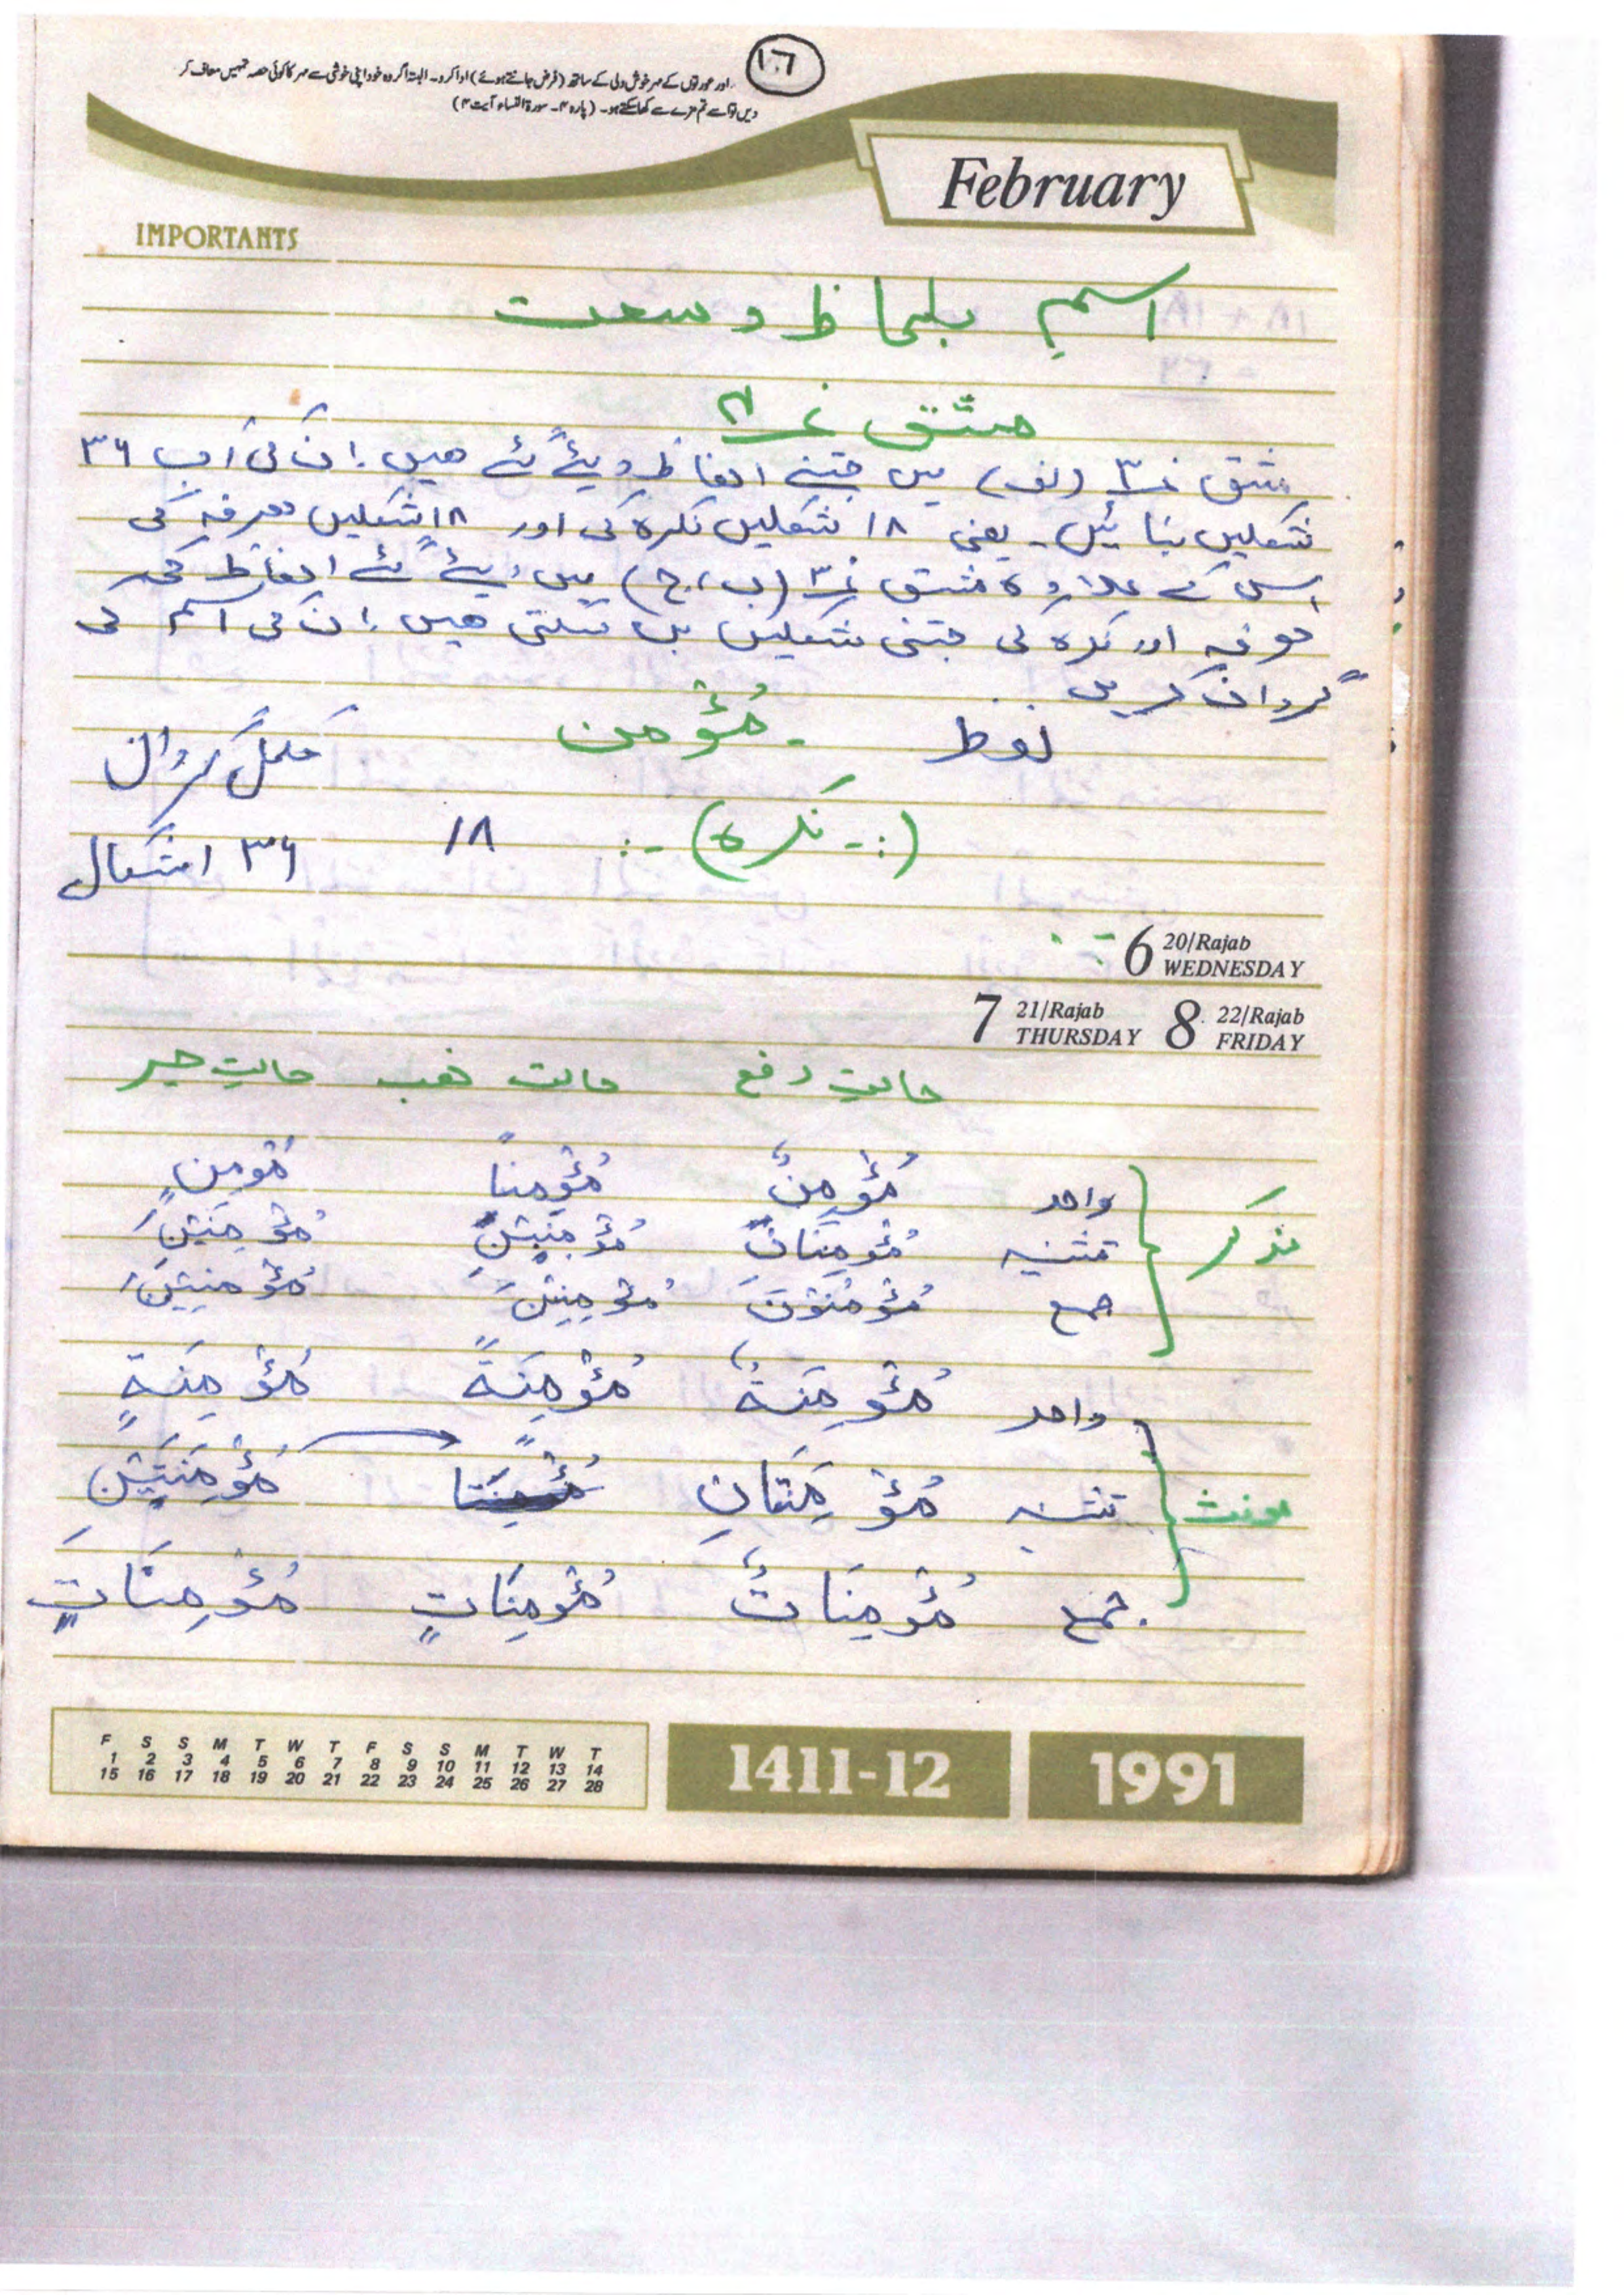 ١٠٦
اور عورتوں کے مہر خوش دلی کے ساتھ (فرض جانتے ہوئے) ادا کرو۔ البتہ اگر وہ خود اپنی خوشی سے مہر کا کوئی حصہ تمہیں معاف کر
دیں تو اسے تم مزے سے کھا سکتے ہو۔ (پارہ ۴۔ سورۃ النساء آیت ۴)
February
IMPORTANTS
اسم بلحاظ وسعت
مشق نمبر
مشق نمبر ۳ (الف) میں جتنے الفاظ دیئے گئے ھیں ان کی اب ۳۶
شکلیں بنائیں۔ یعنی ۱۸ شکلیں نکرہ کی اور ۱۸ شکلیں معرفہ کی
اس کے علاوہ مشق نمبر ۳ (ب، ج) میں دیئے گئے الفاظ کی
معرفہ اور نکرہ کی جتنی شکلیں بن سکتی ھیں ان کی اسم کی
گردان کریں
لفظ - مُؤْمن مکمل گردان
(:- نکرہ) -: ۱۸ ۳۶ اشکال
6 20/Rajab WEDNESDAY
7 21/Rajab THURSDAY 8 22/Rajab FRIDAY
حالتِ رفع حالت نصب حالتِ جر
مذکر
واحد مُؤْمِنٌ مُؤْمِنًا مُؤمِنٍ
تثنیہ مُؤْمِنَانِ مُؤْمِنَيْنِ مُؤْمِنَيْنِ
جمع مُؤْمِنُوْنَ مُؤْمِنِيْنَ مُؤْمِنِيْنَ
مونث
واحد مُؤْمِنَةٌ مُؤْمِنَةً مُؤْمِنَةٍ
تثنیہ مُؤْمِنَتَانِ مُؤْمِنَتَيْنِ
جمع مُؤْمِنَاتٌ مُؤْمِنَاتٍ مُؤْمِنَاتٍ
F S S M T W T F S S M T W T
1 2 3 4 5 6 7 8 9 10 11 12 13 14
15 16 17 18 19 20 21 22 23 24 25 26 27 28
1411-12
1991